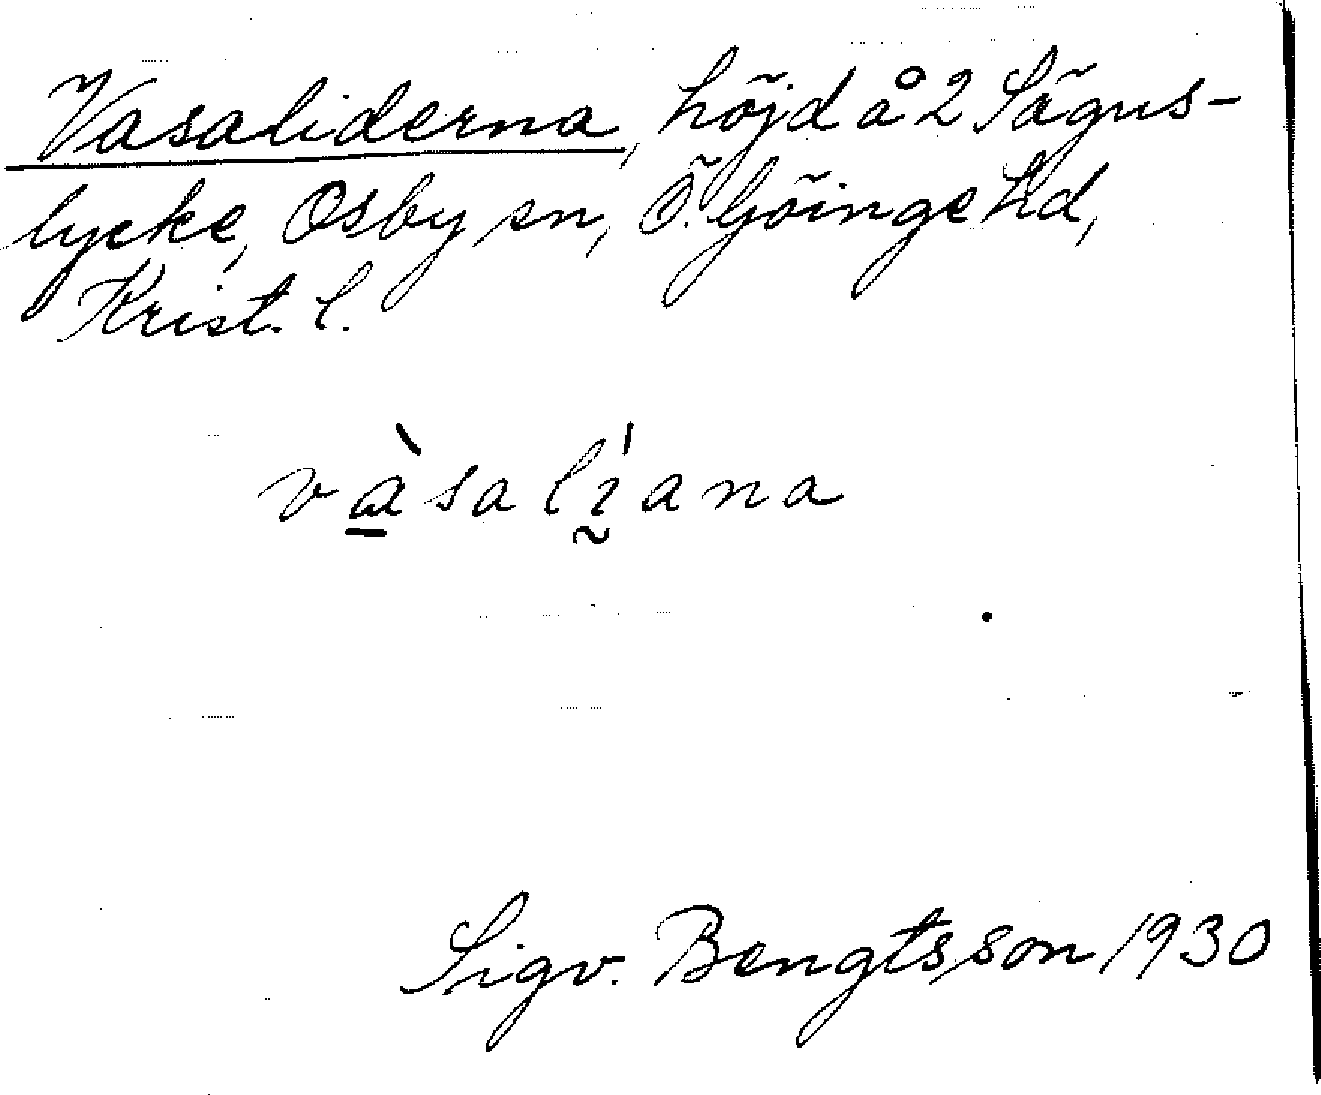 Vasaliderna, höjd å 2 Sägus-
lycke, Osby sn, Ö. Göinge hd,
Krist. l.
và̱salı̰́ana
Sigv. Bengtsson 1930